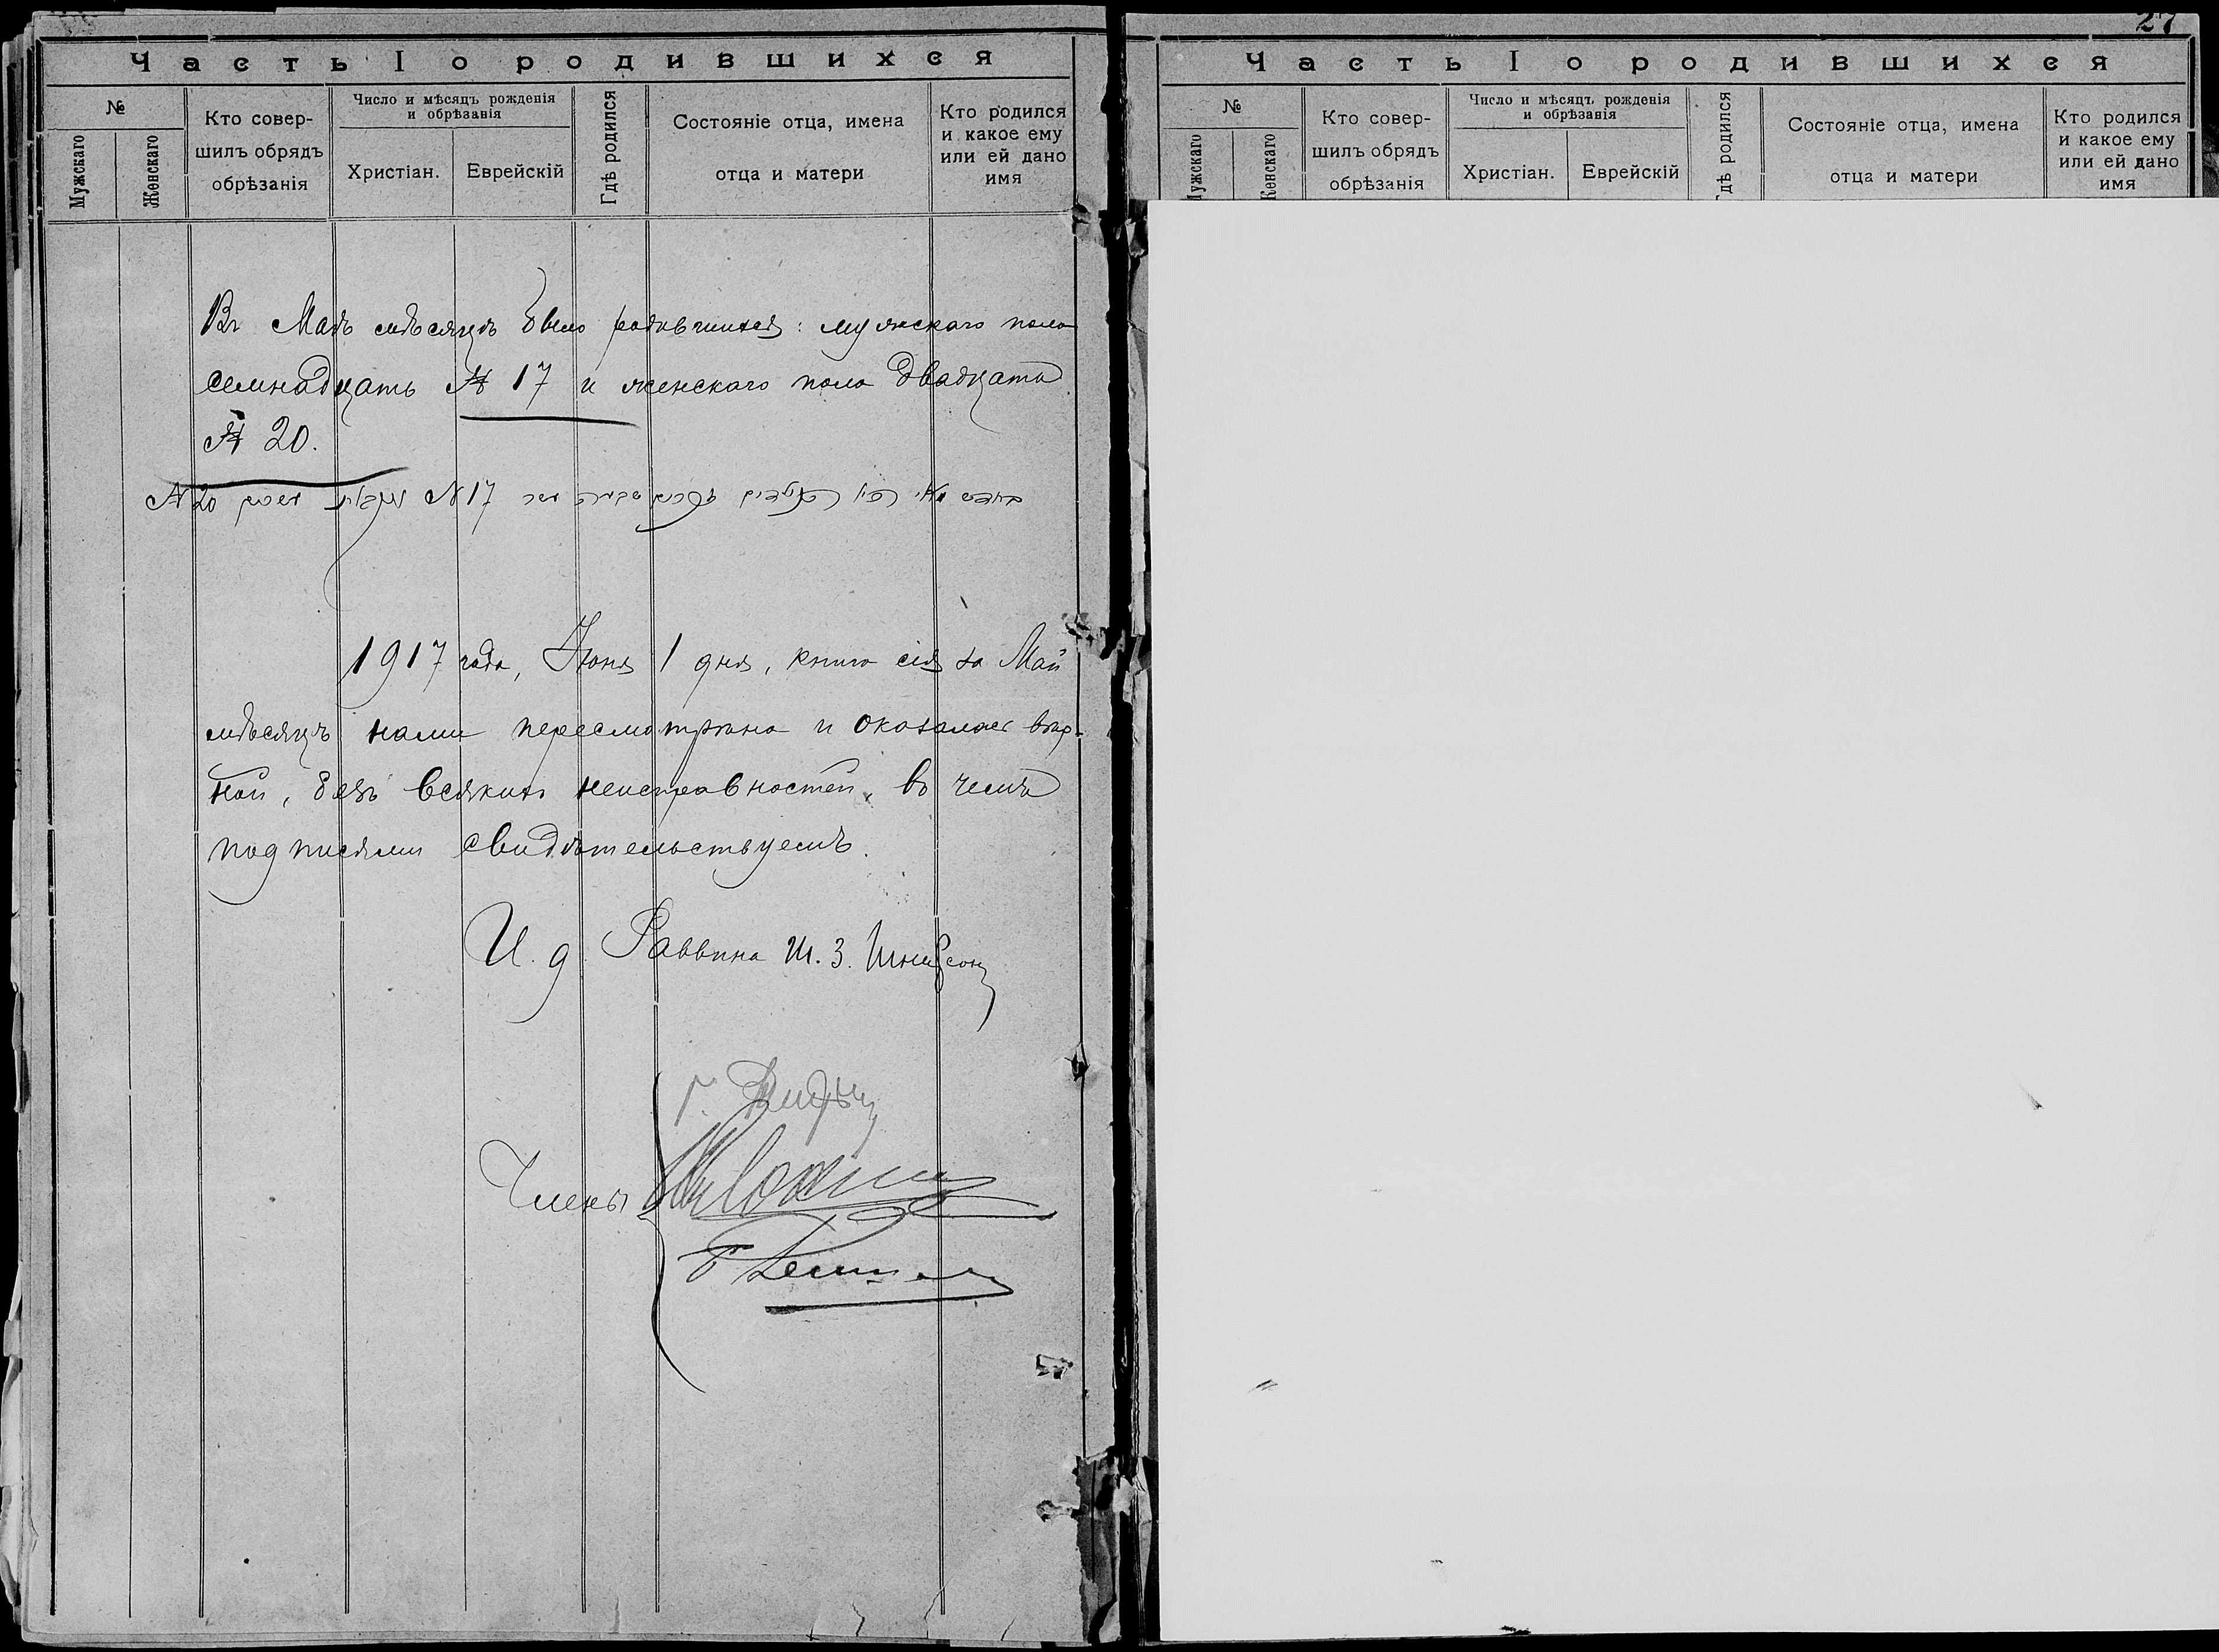 Часть I о родившихся
№
Мужскаго
Женскаго
Кто совер-
шилъ обрядъ
обрѣзанія
Число и мѣсяцъ рожденія
и обрѣзанія
Христіан.
Еврейскій
Гдѣ родился
Состояніе отца, имена
отца и матери
Кто родился
и какое ему
или ей дано
имя
Въ Маѣ мѣсяцѣ было родившихся: мужскаго пола
семнадцать № 17 и женскаго пола двадцать
№ 20.
N 17
N 20
1917 года, Іюня 1 дня, книга сія за Май
мѣсяцъ нами пересмотрѣна и оказалась вѣр-
ной, безъ всякихъ неисправностей, въ чемъ
подписями свидѣтельствуемъ.
И. д. Раввина Ш. З. Шнеерсонъ
Члены
27
Часть I о родившихся
№
Мужскаго
Женскаго
Кто совер-
шилъ обрядъ
обрѣзанія
Число и мѣсяцъ рожденія
и обрѣзанія
Христіан.
Еврейскій
Гдѣ родился
Состояніе отца, имена
отца и матери
Кто родился
и какое ему
или ей дано
имя